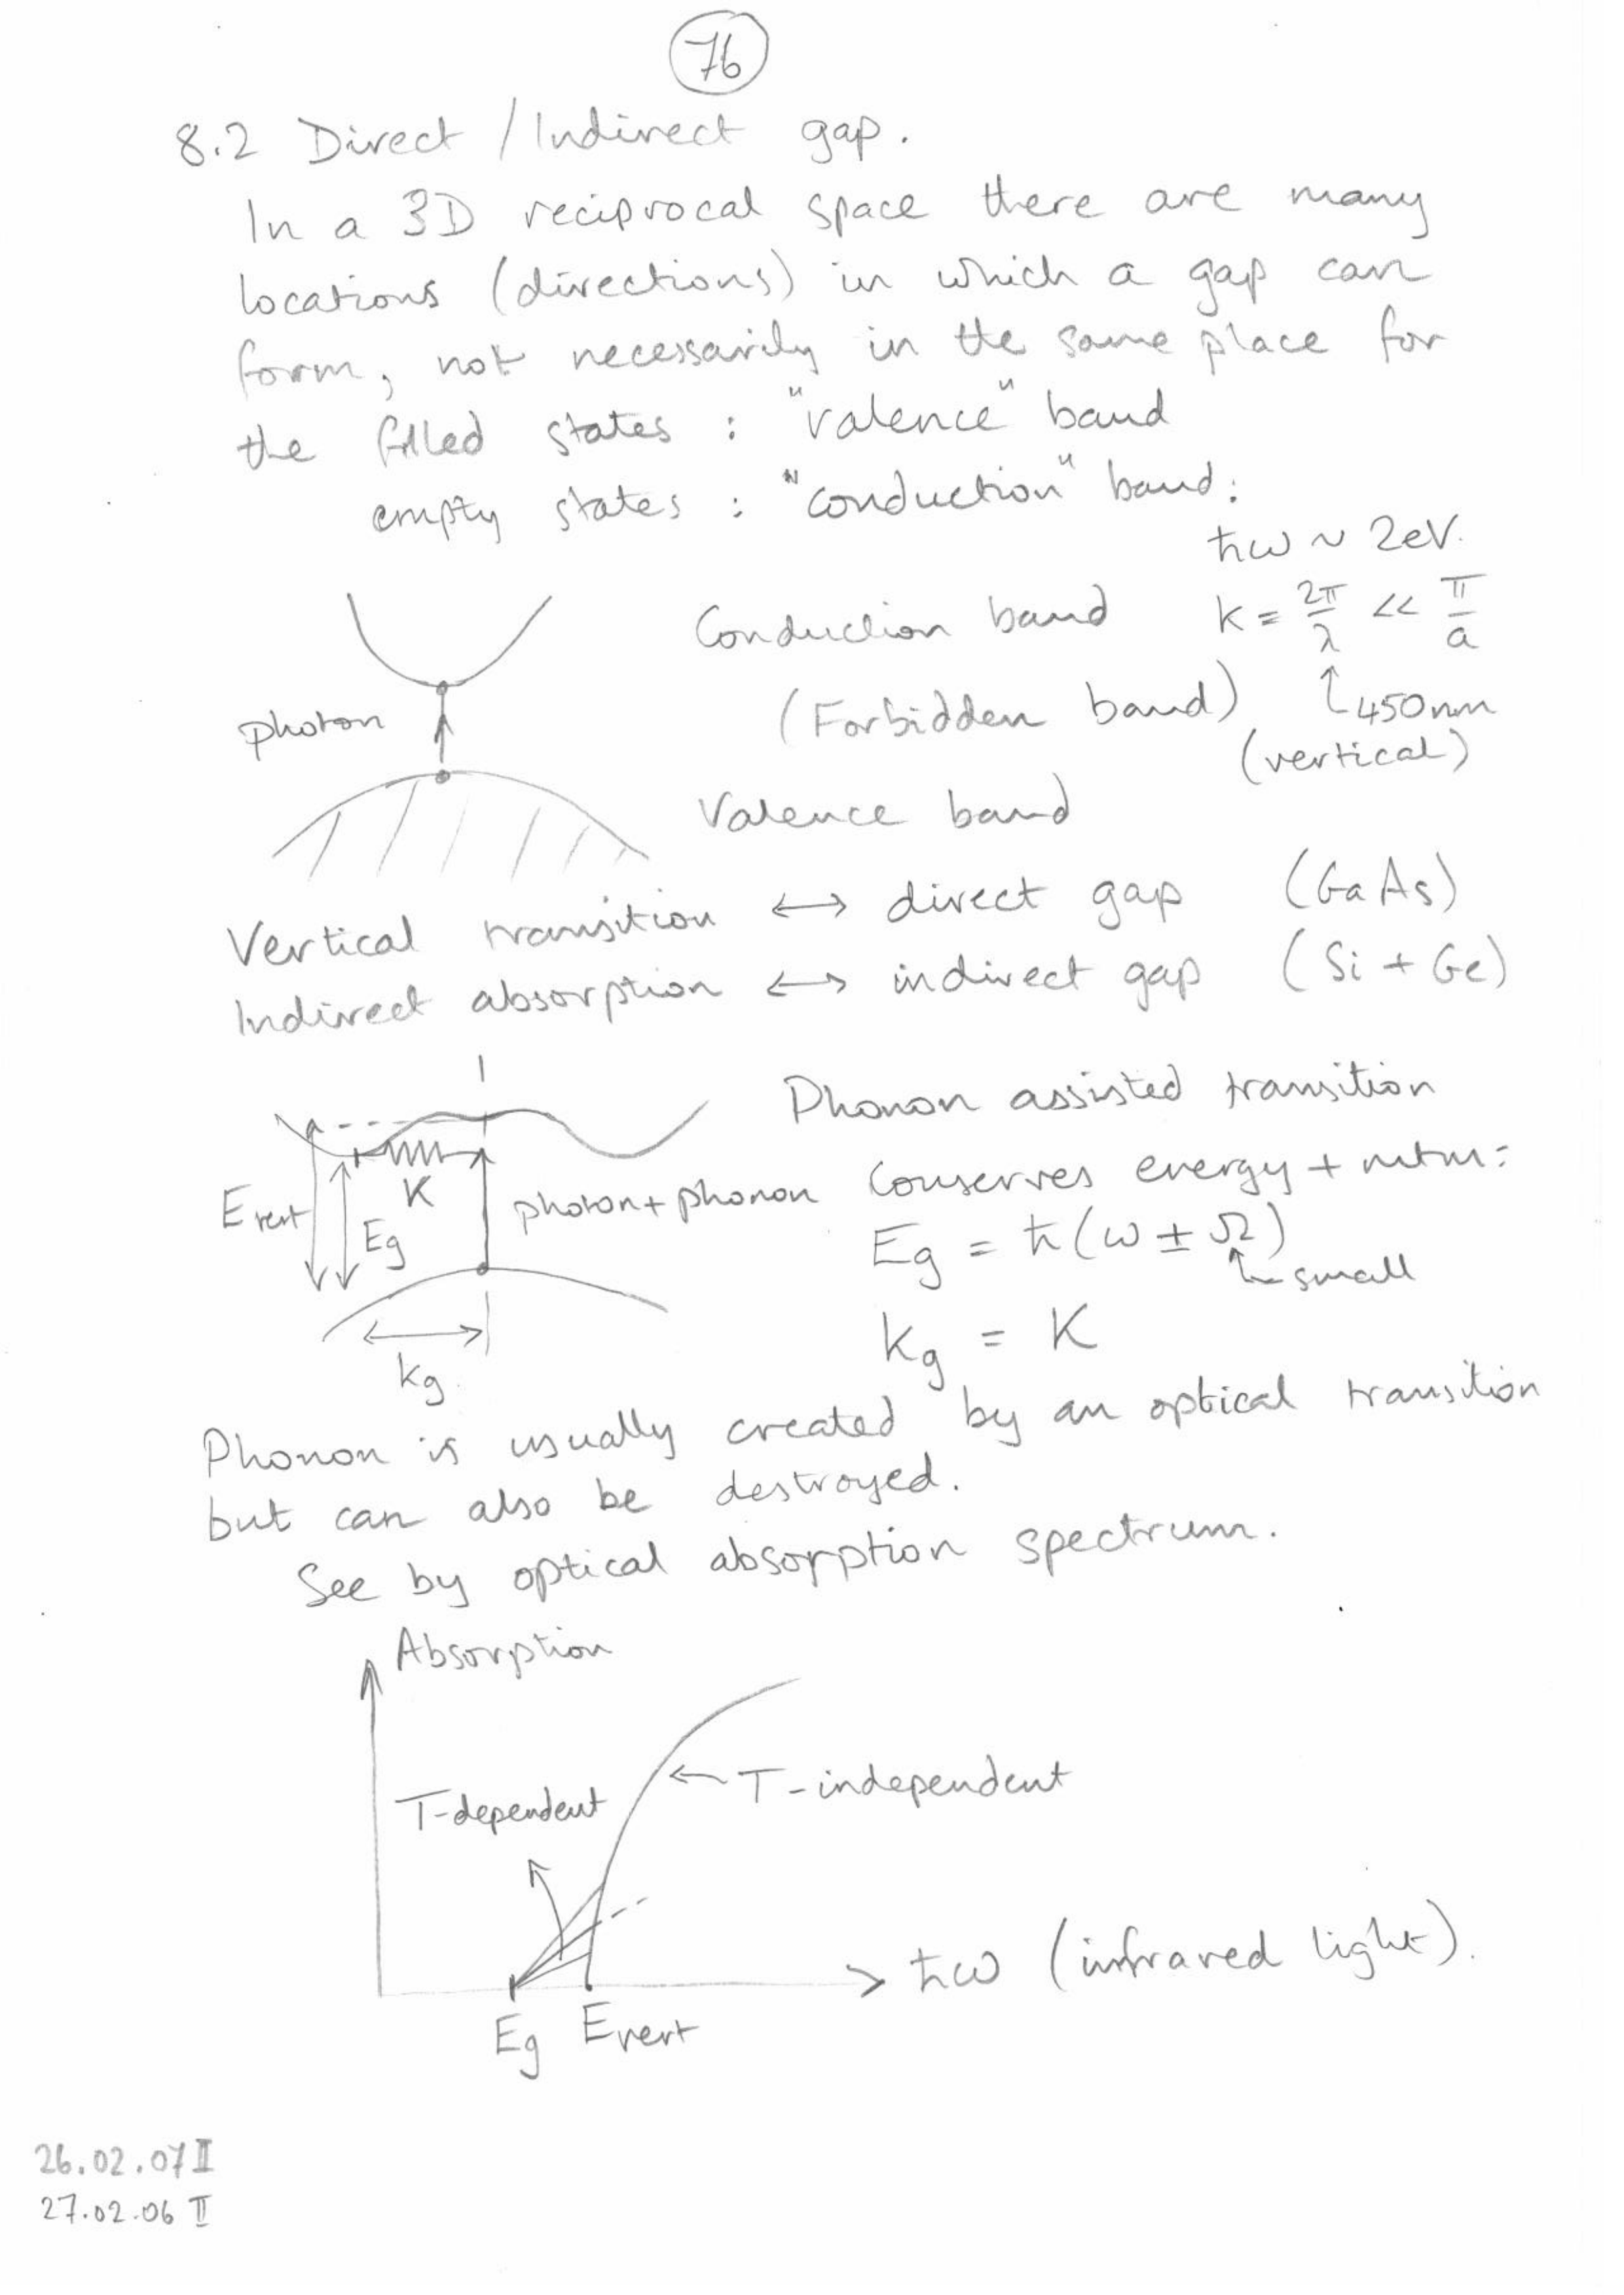 76
8.2 Direct / Indirect gap.
In a 3D reciprocal space there are many
locations (directions) in which a gap can
form, not necessarily in the same place for
the filled states : "valence" band
empty states : "conduction" band:
ħω ~ 2eV.
Conduction band k = 2π/λ << π/a
photon (Forbidden band) ↑450nm
(vertical)
Valence band
Vertical transition ↔ direct gap (GaAs)
Indirect absorption ↔ indirect gap (Si + Ge)
Phonon assisted transition
Evert Eg K photon + phonon Conserves energy + mtm:
Eg = ħ(ω ± Ω)
↑ small
kg kg = K
Phonon is usually created by an optical transition
but can also be destroyed.
See by optical absorption spectrum.
Absorption
T-dependent ← T-independent
ħω (infrared light).
Eg Evert
26.02.07 II
27.02.06 II